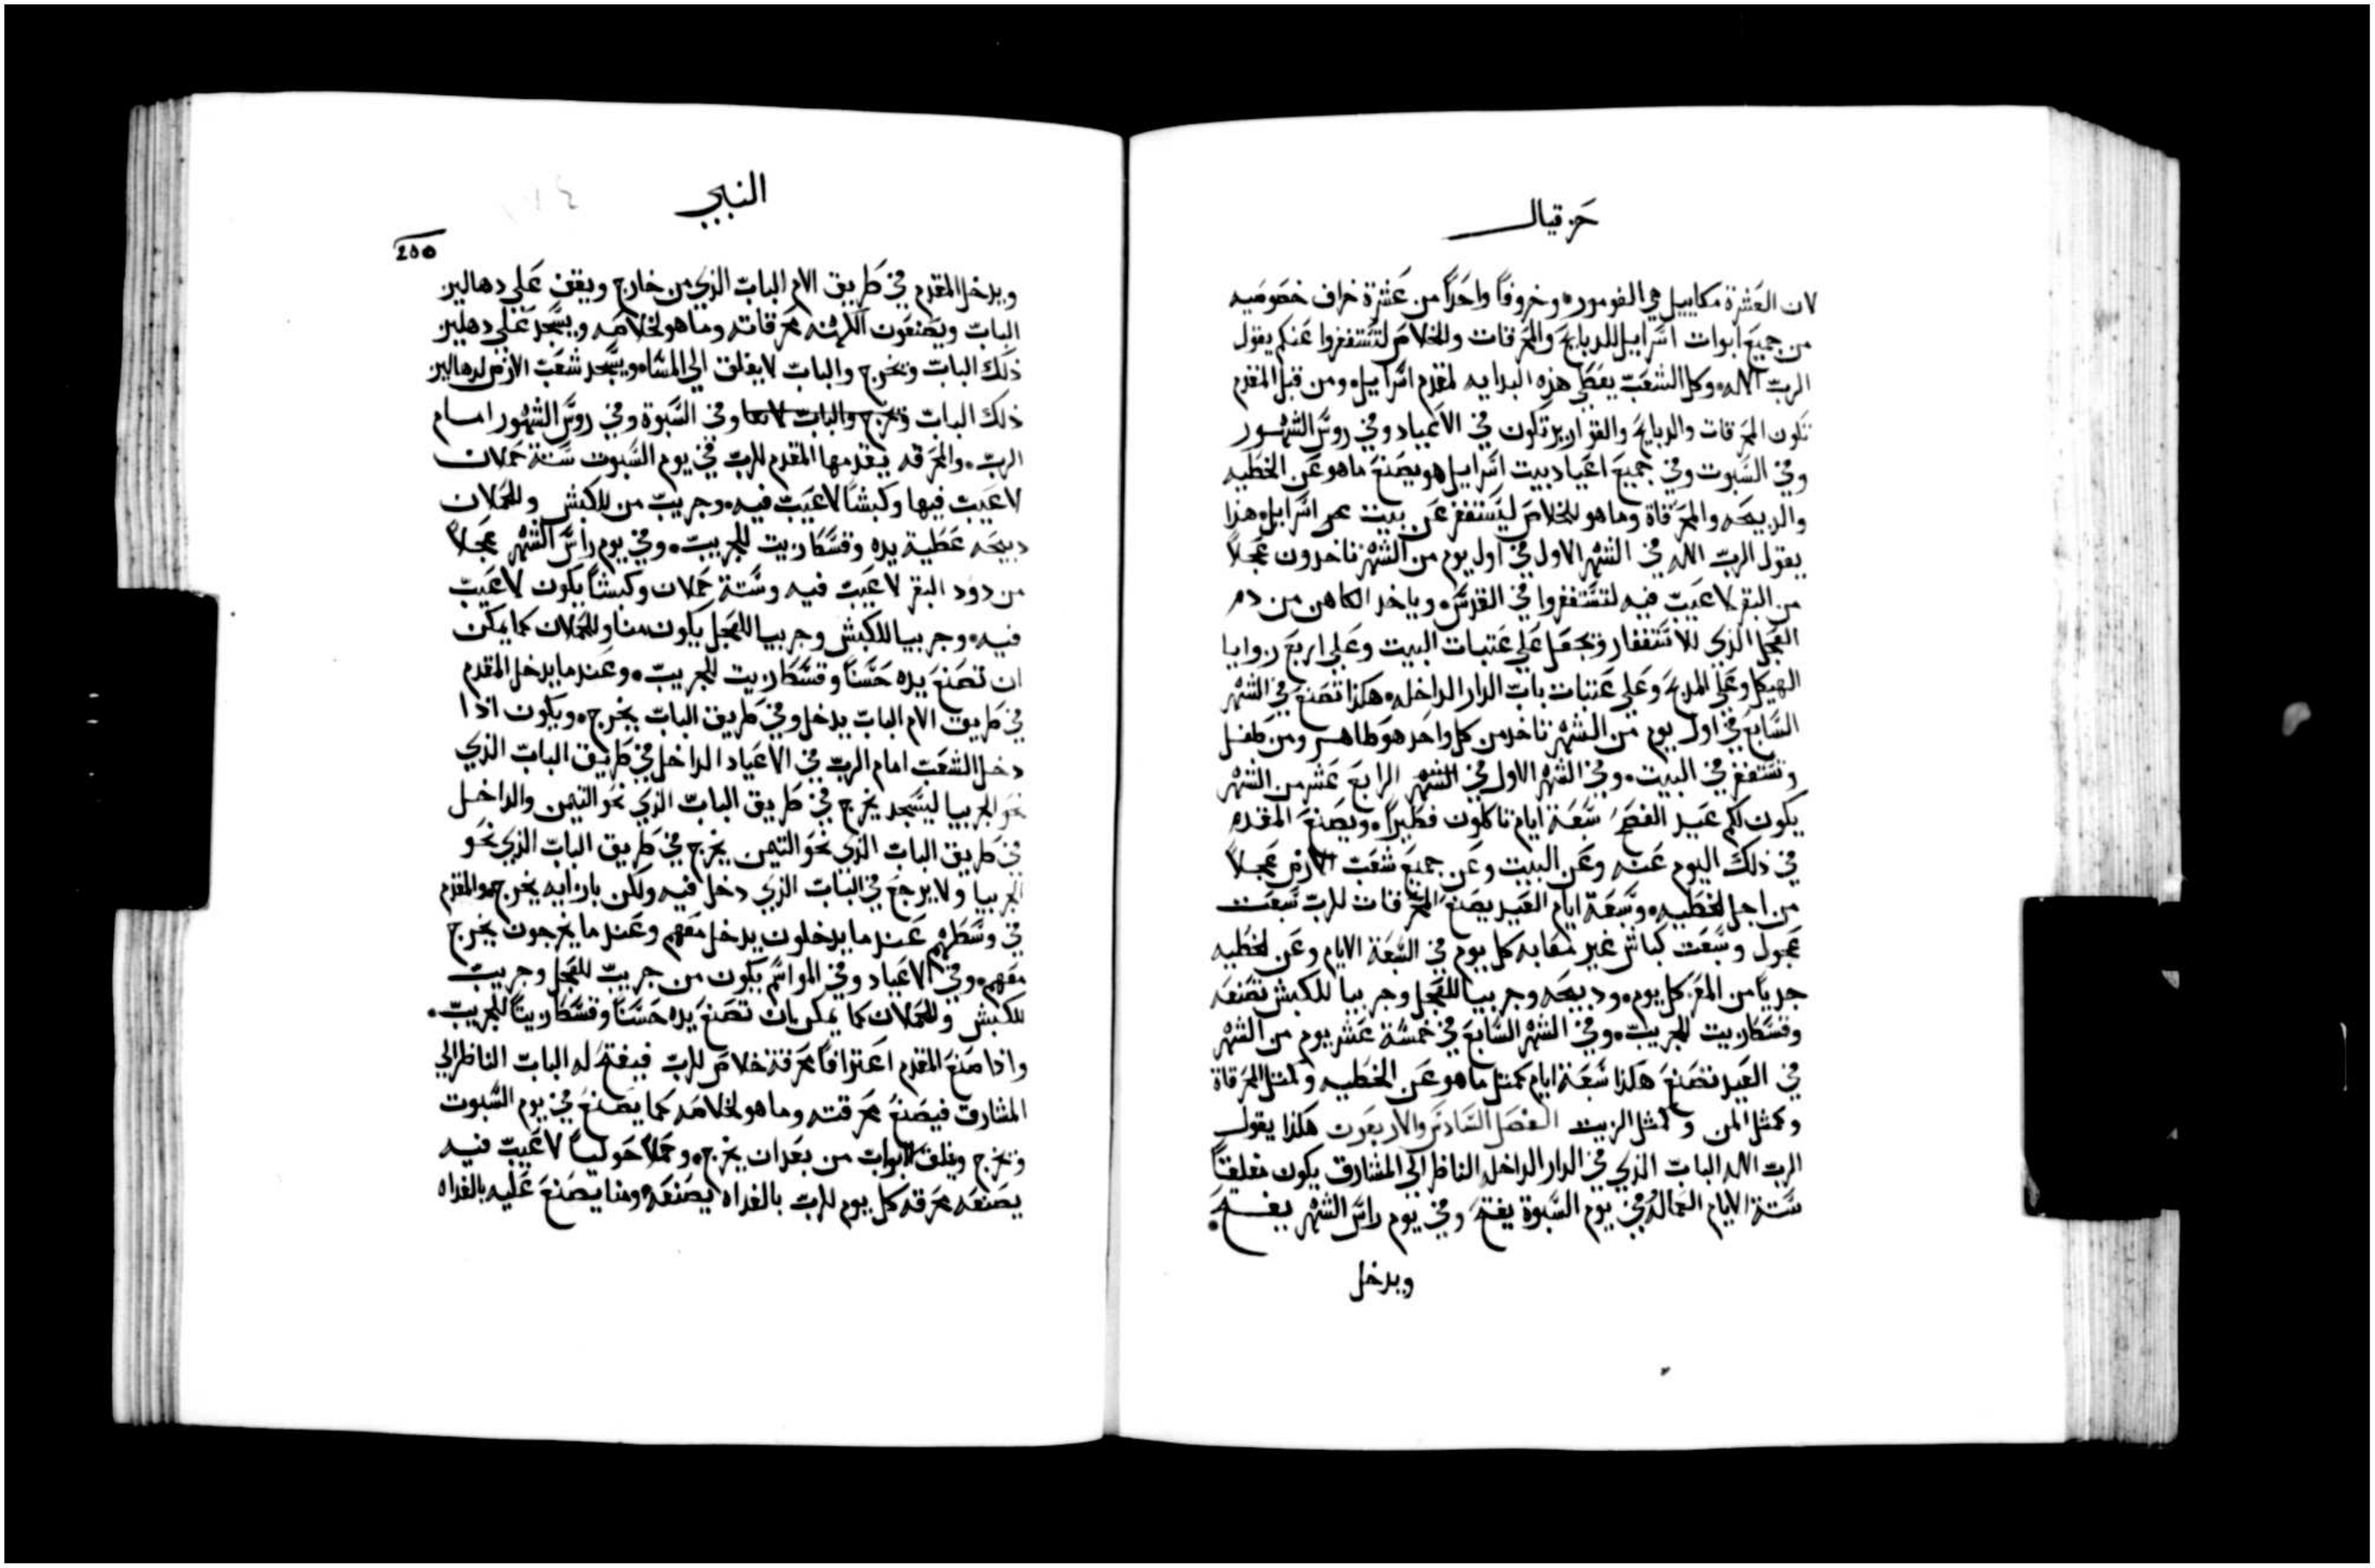 حزقيال
لان العشرة مكاييل هي الغوموره وخروفاً واحداً من عشرة خراف خصوصيه
من جميع ابوات اسراييل للدبايح والمحرقات وللخلاص لتستغفروا عنكم يقول
الرب الاله وكل الشعب يعطي هذه البدايه لمقدم اسراييل ومن قبل المقدم
تكون المحرقات والدبايح والقوارير تكون في الاعياد وفي روس الشهور
وفي السبوت وفي جميع اعياد بيت اسراييل هو يصنع ماهو عن الخطيه
والدبيحه والمحرقاة وماهو للخلاص ليستغفر عن بيت اسراييل هذا
يقول الرب الاله في الشهر الاول في اول يوم من الشهر تاخدون عجلاً
من البقر لاعيب فيه لتستغفروا في القدس وياخد الكاهن من دم
العجل الذي للاستغفار وتجعل علي عتبات البيت وعلي اربع زوايا
الهيكل وعلي المدبح وعلي عتبات باب الدار الداخله هكذا تصنع في الشهر
السابع في اول يوم من الشهر تاخد من كل واحد هو طاهر ومن طفل
وتستغفر في البيت وفي الشهر الاول في الشهر الرابع عشر من الشهر
يكون لكم عيد الفصح سبعة ايام تاكلون فطيراً ويصنع المقدم
في ذلك اليوم عنه وعن البيت وعن جميع شعب الارض عجلاً
من اجل الخطيه وسبعة ايام العيد يصنع المحرقات للرب سبعت
عجول وسبعت كباش غير معابه كل يوم في السبعة الايام وعن الخطيه
جدياً من المعز كل يوم ودبيحه وجريبا للعجل وجريبا للكبش تصنعه
وقسط زيت للجريب وفي الشهر السابع في خمسة عشر يوم من الشهر
في العيد تصنع هكذا سبعة ايام كمثل ماهو عن الخطيه وكمثل المحرقاة
وكمثل المن وكمثل الزيت الفصل السادس والاربعون هكذا يقول
الرب الاله الباب الذي في الدار الداخله الناظر الي المشارق يكون مغلقاً
ستة الايام العماله في يوم السبوة يفتح وفي يوم راس الشهر يفتح
ويدخل
النبي
200
ويدخل المقدم في طريق الام الباب الذي من خارج ويقف علي دهاليز
الباب ويصنعون الكهنه محرقاته وماهو لخلاصه ويسجد علي دهليز
ذلك الباب ويخرج والباب لا يغلق الي المساه ويسجد شعب الارض لدهاليز
ذلك الباب وتخرج والباب وفي السبوة وفي روس الشهور امام
الرب والمحرقه يقدمها المقدم للرب في يوم السبوت ستة حملان
لاعيب فيها وكبشاً لاعيب فيه وجريب من للكبش وللحملان
دبيحه عطية يده وقسط زيت للجريب وفي يوم راس الشهر عجلاً
من دود البقر لاعيب فيه وستة حملان وكبشاً يكون لاعيب
فيه وجريبا للكبش وجريبا للعجل يكون منا وللحملان كما يمكن
ان تصنع يده حسناً وقسط زيت للجريب وعند ما يدخل المقدم
في طريق الام الباب يدخل وفي طريق الباب يخرج ويكون اذا
دخل الشعب امام الرب في الاعياد الداخل في طريق الباب الذي
نحو الجربيا ليسجد يخرج في طريق الباب الذي نحو التيمن والداخل
في طريق الباب الذي نحو التيمن يخرج في طريق الباب الذي نحو
الجربيا ولا يرجع في الباب الذي دخل فيه ولكن بازايه يخرج والمقدم
في وسطهم عند ما يدخلون يدخل معهم وعند ما يخرجون يخرج
معهم وفي الاعياد وفي المواسم يكون من جريب للعجل وجريب
للكبش وللحملان كما يمكن بان تصنع يده حسناً وقسط زيتاً للجريب
واذا صنع المقدم اعترافاً محرقة خلاص للرب فيفتح له الباب الناظر الي
المشارق فيصنع محرقته وماهو لخلاصه كما يصنع في يوم السبوت
ويخرج ويغلق الابواب من بعد ان يخرج وحملاً حولياً لاعيب فيه
يصنعه محرقه كل يوم للرب بالغداه يصنعه ومنا يصنع عليه بالغداه